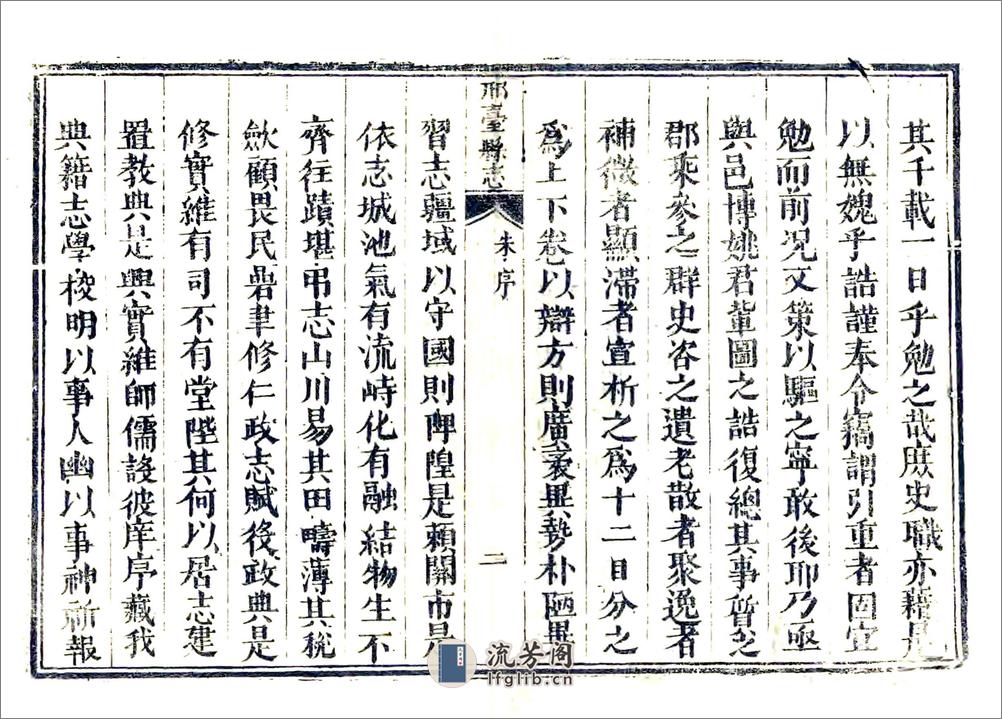 其千載一日乎勉之哉庶史職亦藉是
以無媿乎誥謹奉令竊謂引重者固宜
勉而前况文策以驅之寧敢後耶乃亟
與邑博姚君鞏圖之誥復總其事暫
郡乘參之群史咨之遺老散者聚逸者
補微者顯滯者宣析之爲十二目分之
爲上下卷以辯方則廣袤異勢朴陋異
邢臺縣志
朱序
二
習志疆域以守國則陴隍是賴關市是
依志城池氣有流峙化有融結物生不
齊往蹟堪弔志山川易其田疇薄其稅
歛顧畏民碞聿修仁政志賦役政典是
修實維有司不有堂陛其何以居志建
置教典是興實維師儒設彼庠序藏我
典籍志學校明以事人幽以事神祈報
流芳阁
lfglib.cn